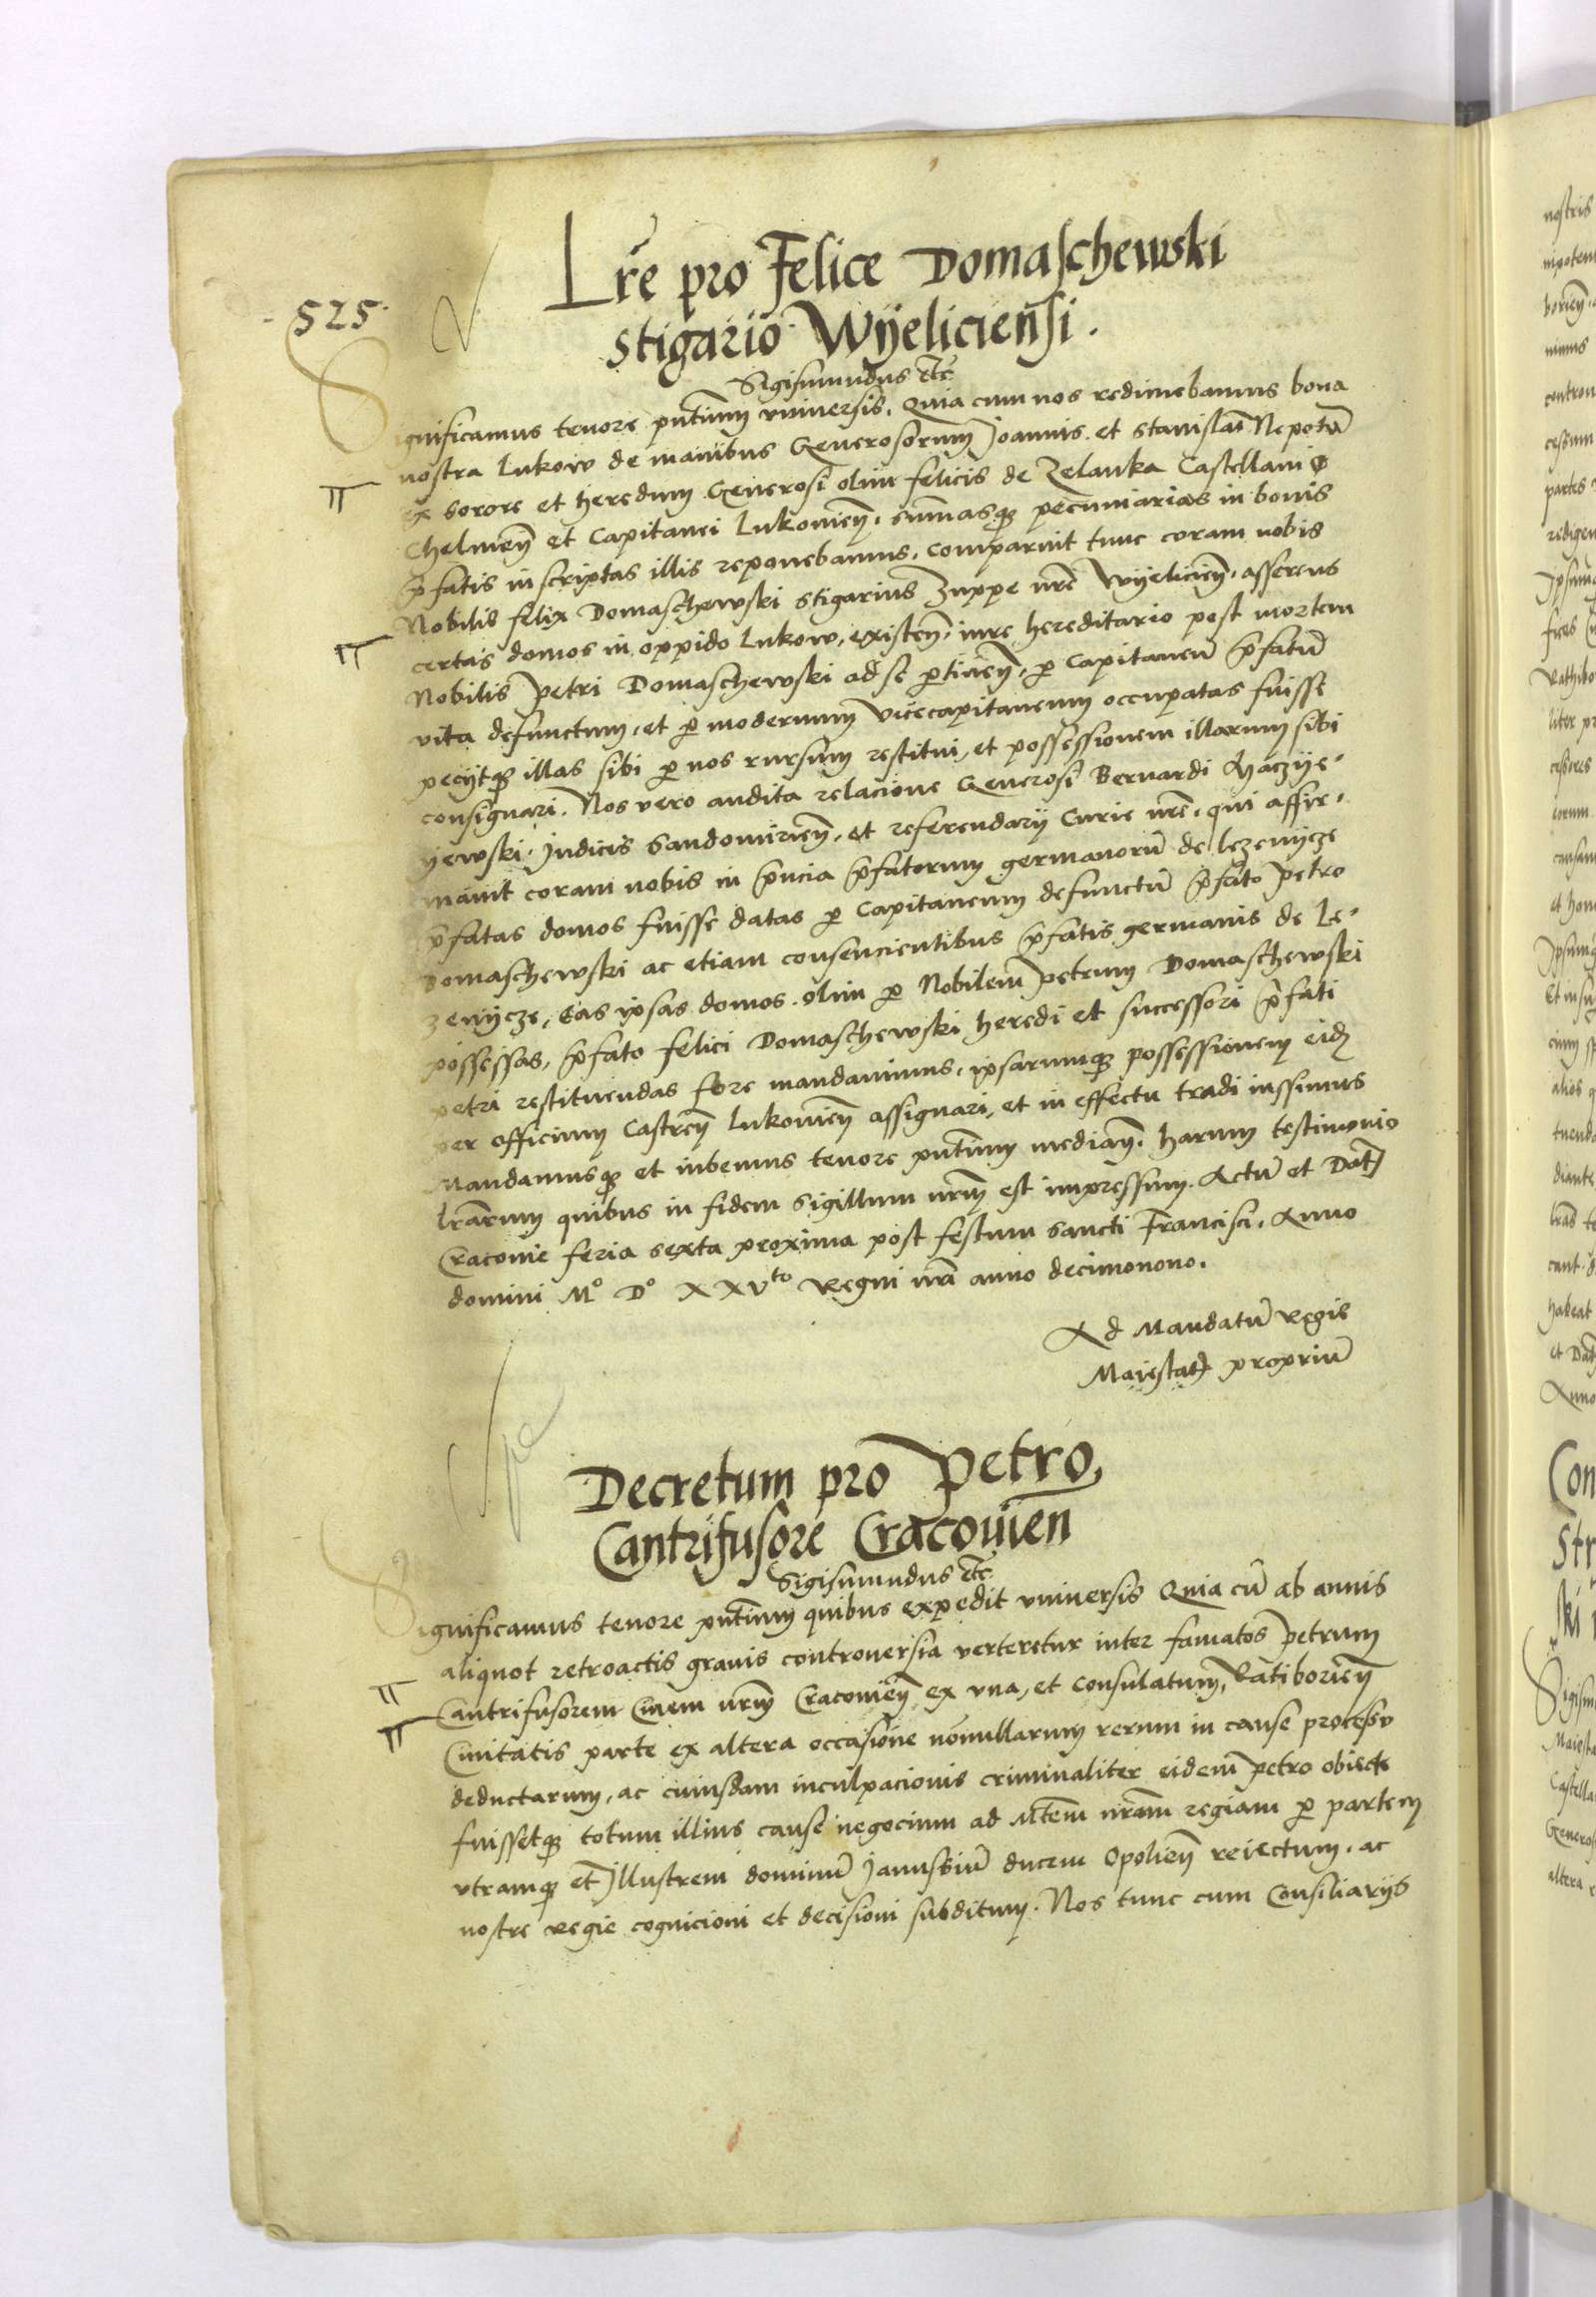 Lr̃e pro Felice Domaschewski
525
Stigario Wÿeliciensi.
Sigismundus etc̃
Significamus tenore pñtium vniversis. Quia cum nos redimebamus bona
nostra Lukow de manibus Generosorum Joannis et Stanislai Nepotũ
ex sorore et heredum Generosi olim felicis de Zelanka Castellani
Chelmeñ et Capitanei Lukovieñ. sum̃asqꝫ pecuniarias in bonis
p̃fatis inscriptas illis reponebamus. Comparuit tunc coram nobis
Nobilis felix Domaschewski stigarius Zuppe nr̃e Wÿelicieñ. asserens
certas domos in oppido Lukow, existeñ. iure hereditario post mortem
Nobilis Petri Domaschewski ad se ꝑtineñ, ꝑ Capitaneũ p̃fatũ
vita defunctum, et ꝑ modernum vicecapitaneum occupatas fuisse
peciitqꝫ illas sibi ꝑ nos rursum restitui, et possessionem illarum sibi
consignari. Nos vero audita relacione Generosi Bernardi Maczÿe-
ÿewski. Judicis Sandomirieñ. et referendarÿ Curie nr̃e. qui affir-
mauit coram nobis in p̃ncia p̃fatorum germanorũ de lezenÿcze
p̃fatas domos fuisse datas ꝑ Capitaneum defunctũ p̃fato Petro
Domaschewski ac etiam consencientibus p̃fatis germanis de Le-
zenÿcze, Eas ipsas domos olim ꝑ Nobilem Petrum Domaschewski
possessas, p̃fato felici Domaschewski heredi et successori p̃fati
petri restituendas fore mandauimus, ipsarumqꝫ possessionem eidꝫ
per officium Castreñ Lukovieñ assignari, et in effectu tradi iussimus
Mandamusqꝫ et iubemus tenore pñtium mediañ. harum testimonio
lr̃arum quibus in fidem Sigillum nr̃um est impressum. Actũ et Datꝫ
Cracovie feria sexta proxima post festum Sancti Francisci. Anno
domini Mº Dº XXVto Regni nr̃i anno decimonono.
Ad Mandatũ Regis
Maiestatꝫ propriũ
Decretum pro Petro
Cantrifusore Cracouien
Sigismundus etc̃
Significamus tenore pñtium quibus expedit vniversis Quia cũ ab annis
aliquot retroactis grauis controuersia verteretur inter famatos Petrum
Cantrifusorem Ciuem nr̃um Cracovieñ ex vna, et Consulatum Ratiborieñ
Ciuitatis parte ex altera occasione nonnullarum rerum in cause processu
deductarum, ac cuiusdam inculpacionis criminaliter eidem Petro obiecte
fuissetqꝫ totum illius cause negocium ad Mtem nr̃am regiam ꝑ partem
vtramqꝫ et Illustrem dominũ Janussiũ ducem Opolieñ reiectum. ac
nostre Regie cognicioni et decisioni subditum. Nos tunc cum Consiliarÿs